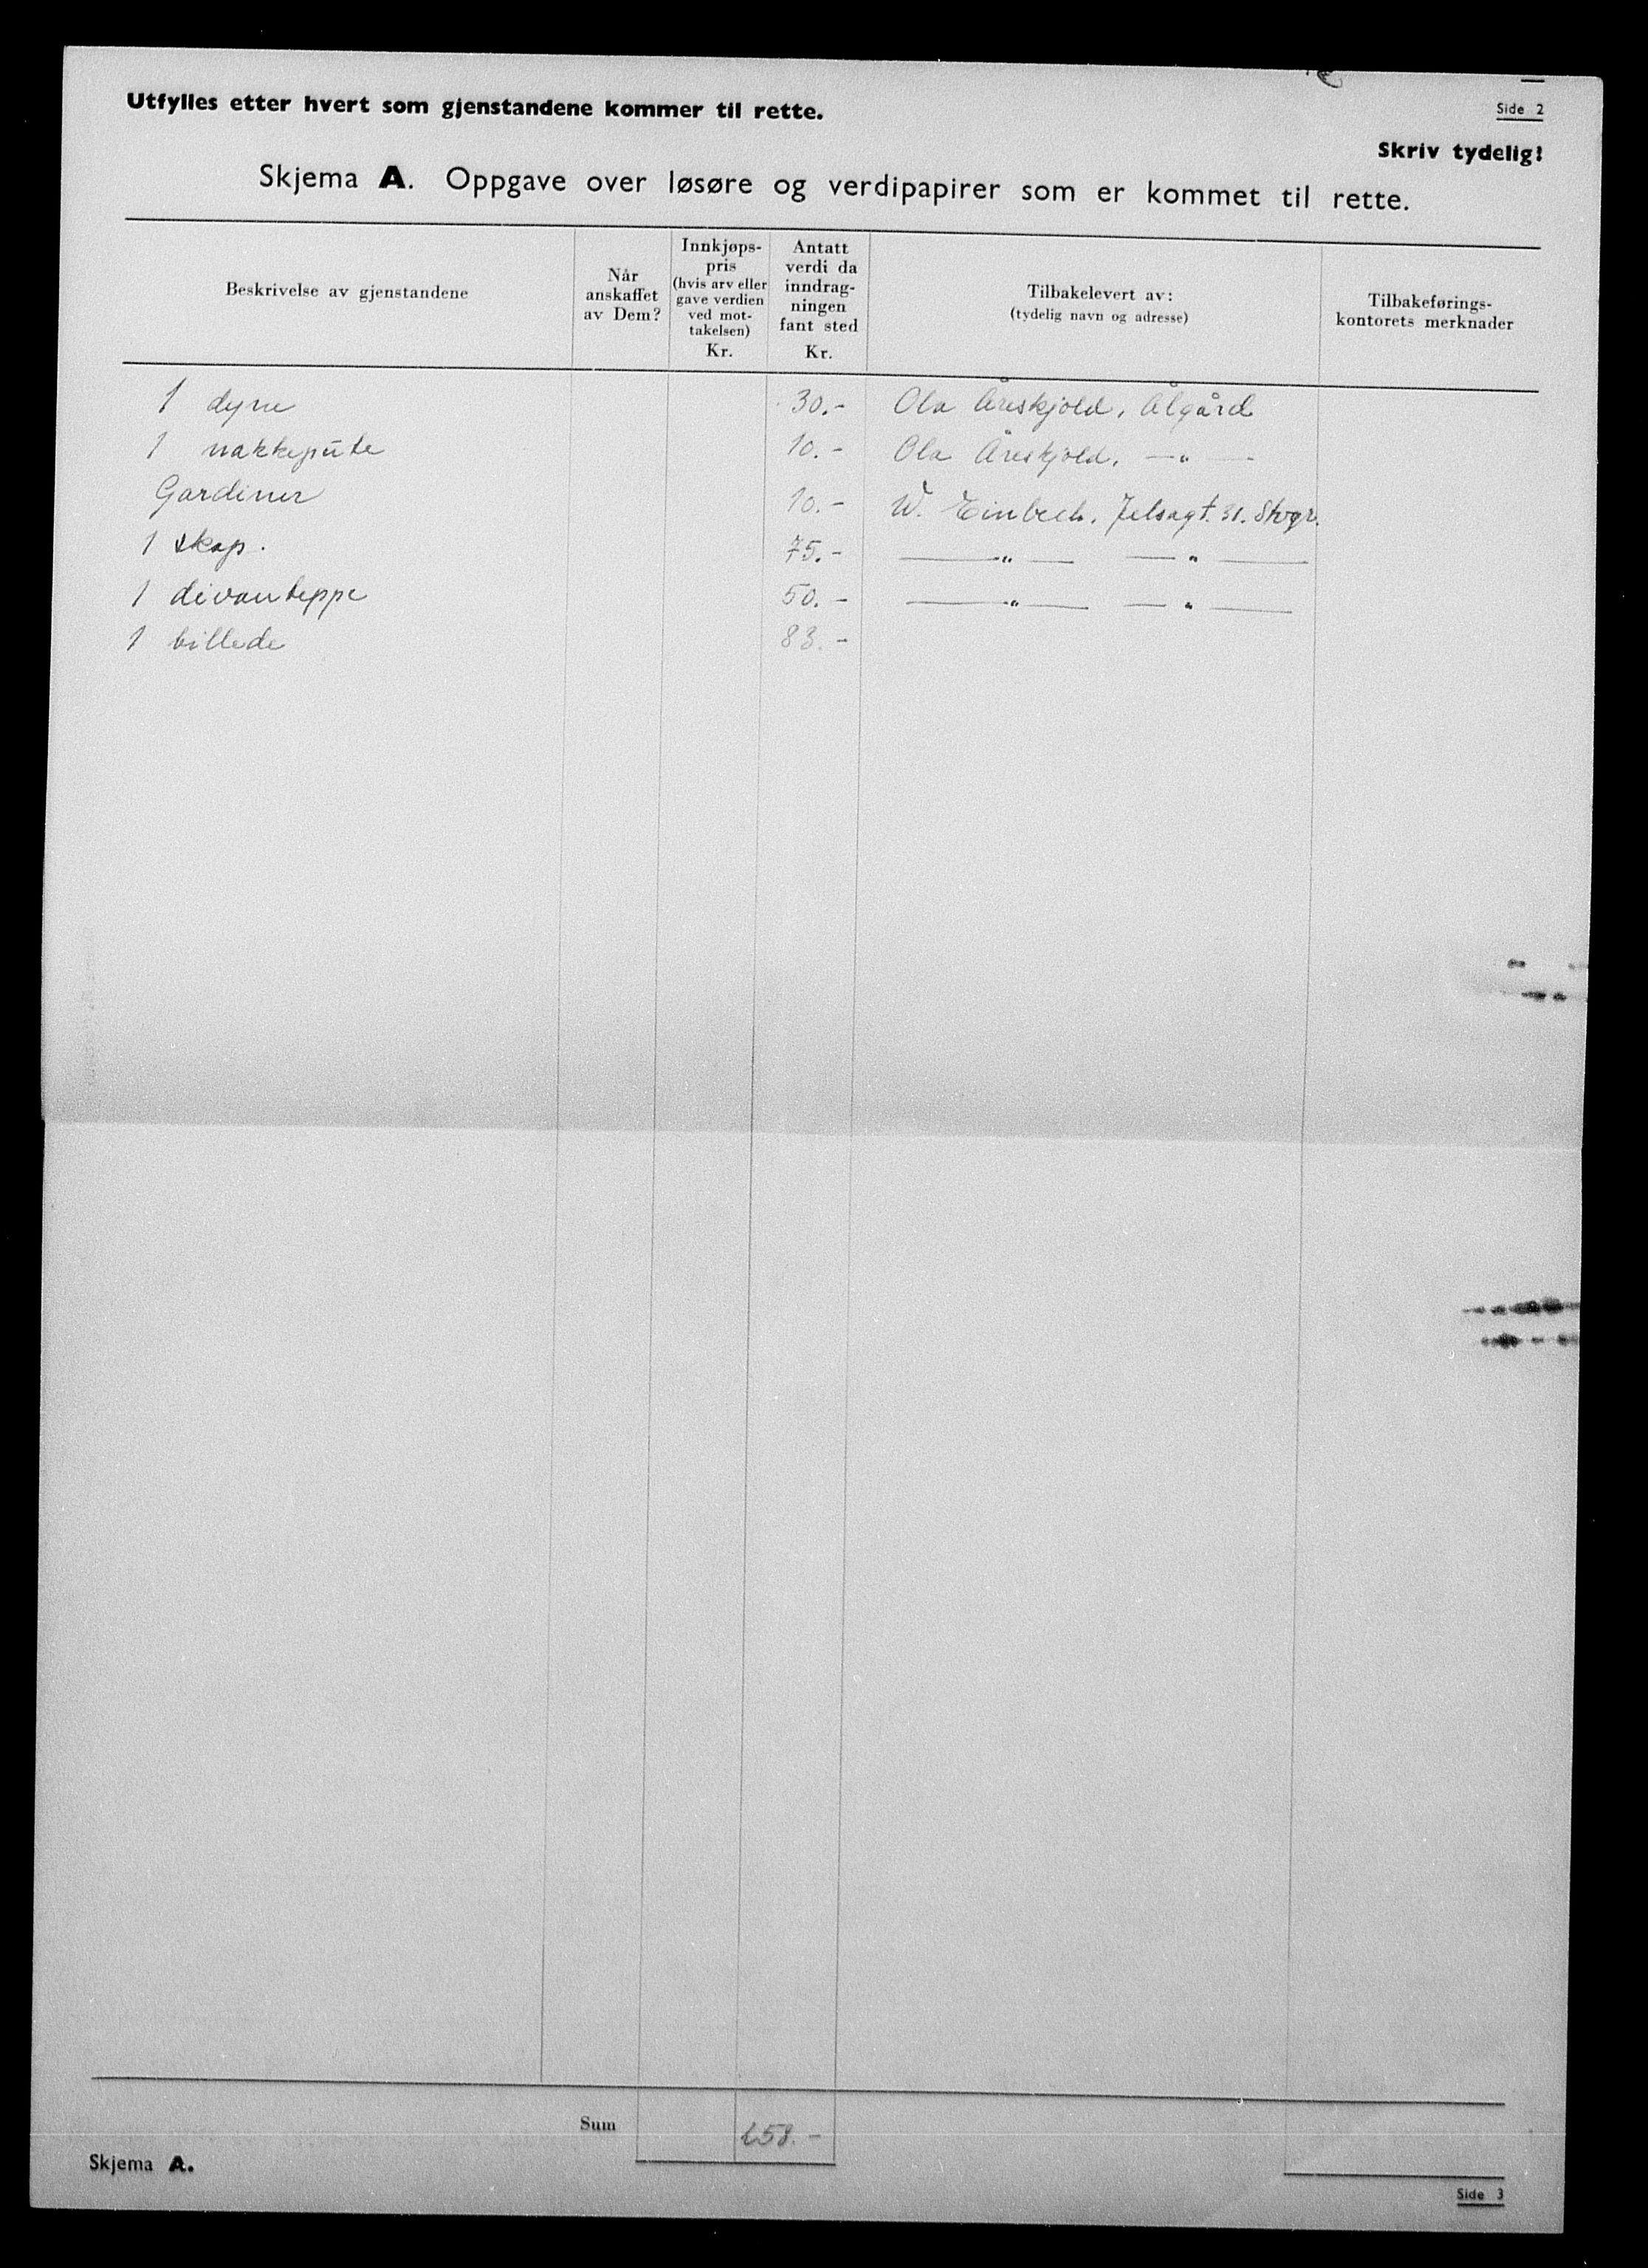 Utfylles etter hvert som gjenstandene kommer til rette.
Side 2
Skriv tydelig!
Skjema A. Oppgave over løsøre og verdipapirer som er kommet til rette.
Beskrivelse av gjenstandene
Når
anskaffet
av Dem?
Innkjøps-
pris
(hvis arv eller
gave verdien
ved mot-
takelsen)
Kr.
Antatt
verdi da
inndrag-
ningen
fant sted
Kr.
Tilbakelevert av:
(tydelig navn og adresse)
Tilbakeførings-
kontorets merknader
1 dyne 30.- Ola Åreskjold, Ålgård
1 nakkepute 10.- Ola Åreskjold, —"—
Gardiner 10.- W. Einbeck, Jelsagt. 31. Stvgr.
1 skap. 75.- —"— —"—
1 divanteppe 50.- —"— —"—
1 billede 83.-
Sum 258.-
Skjema A.
Side 3